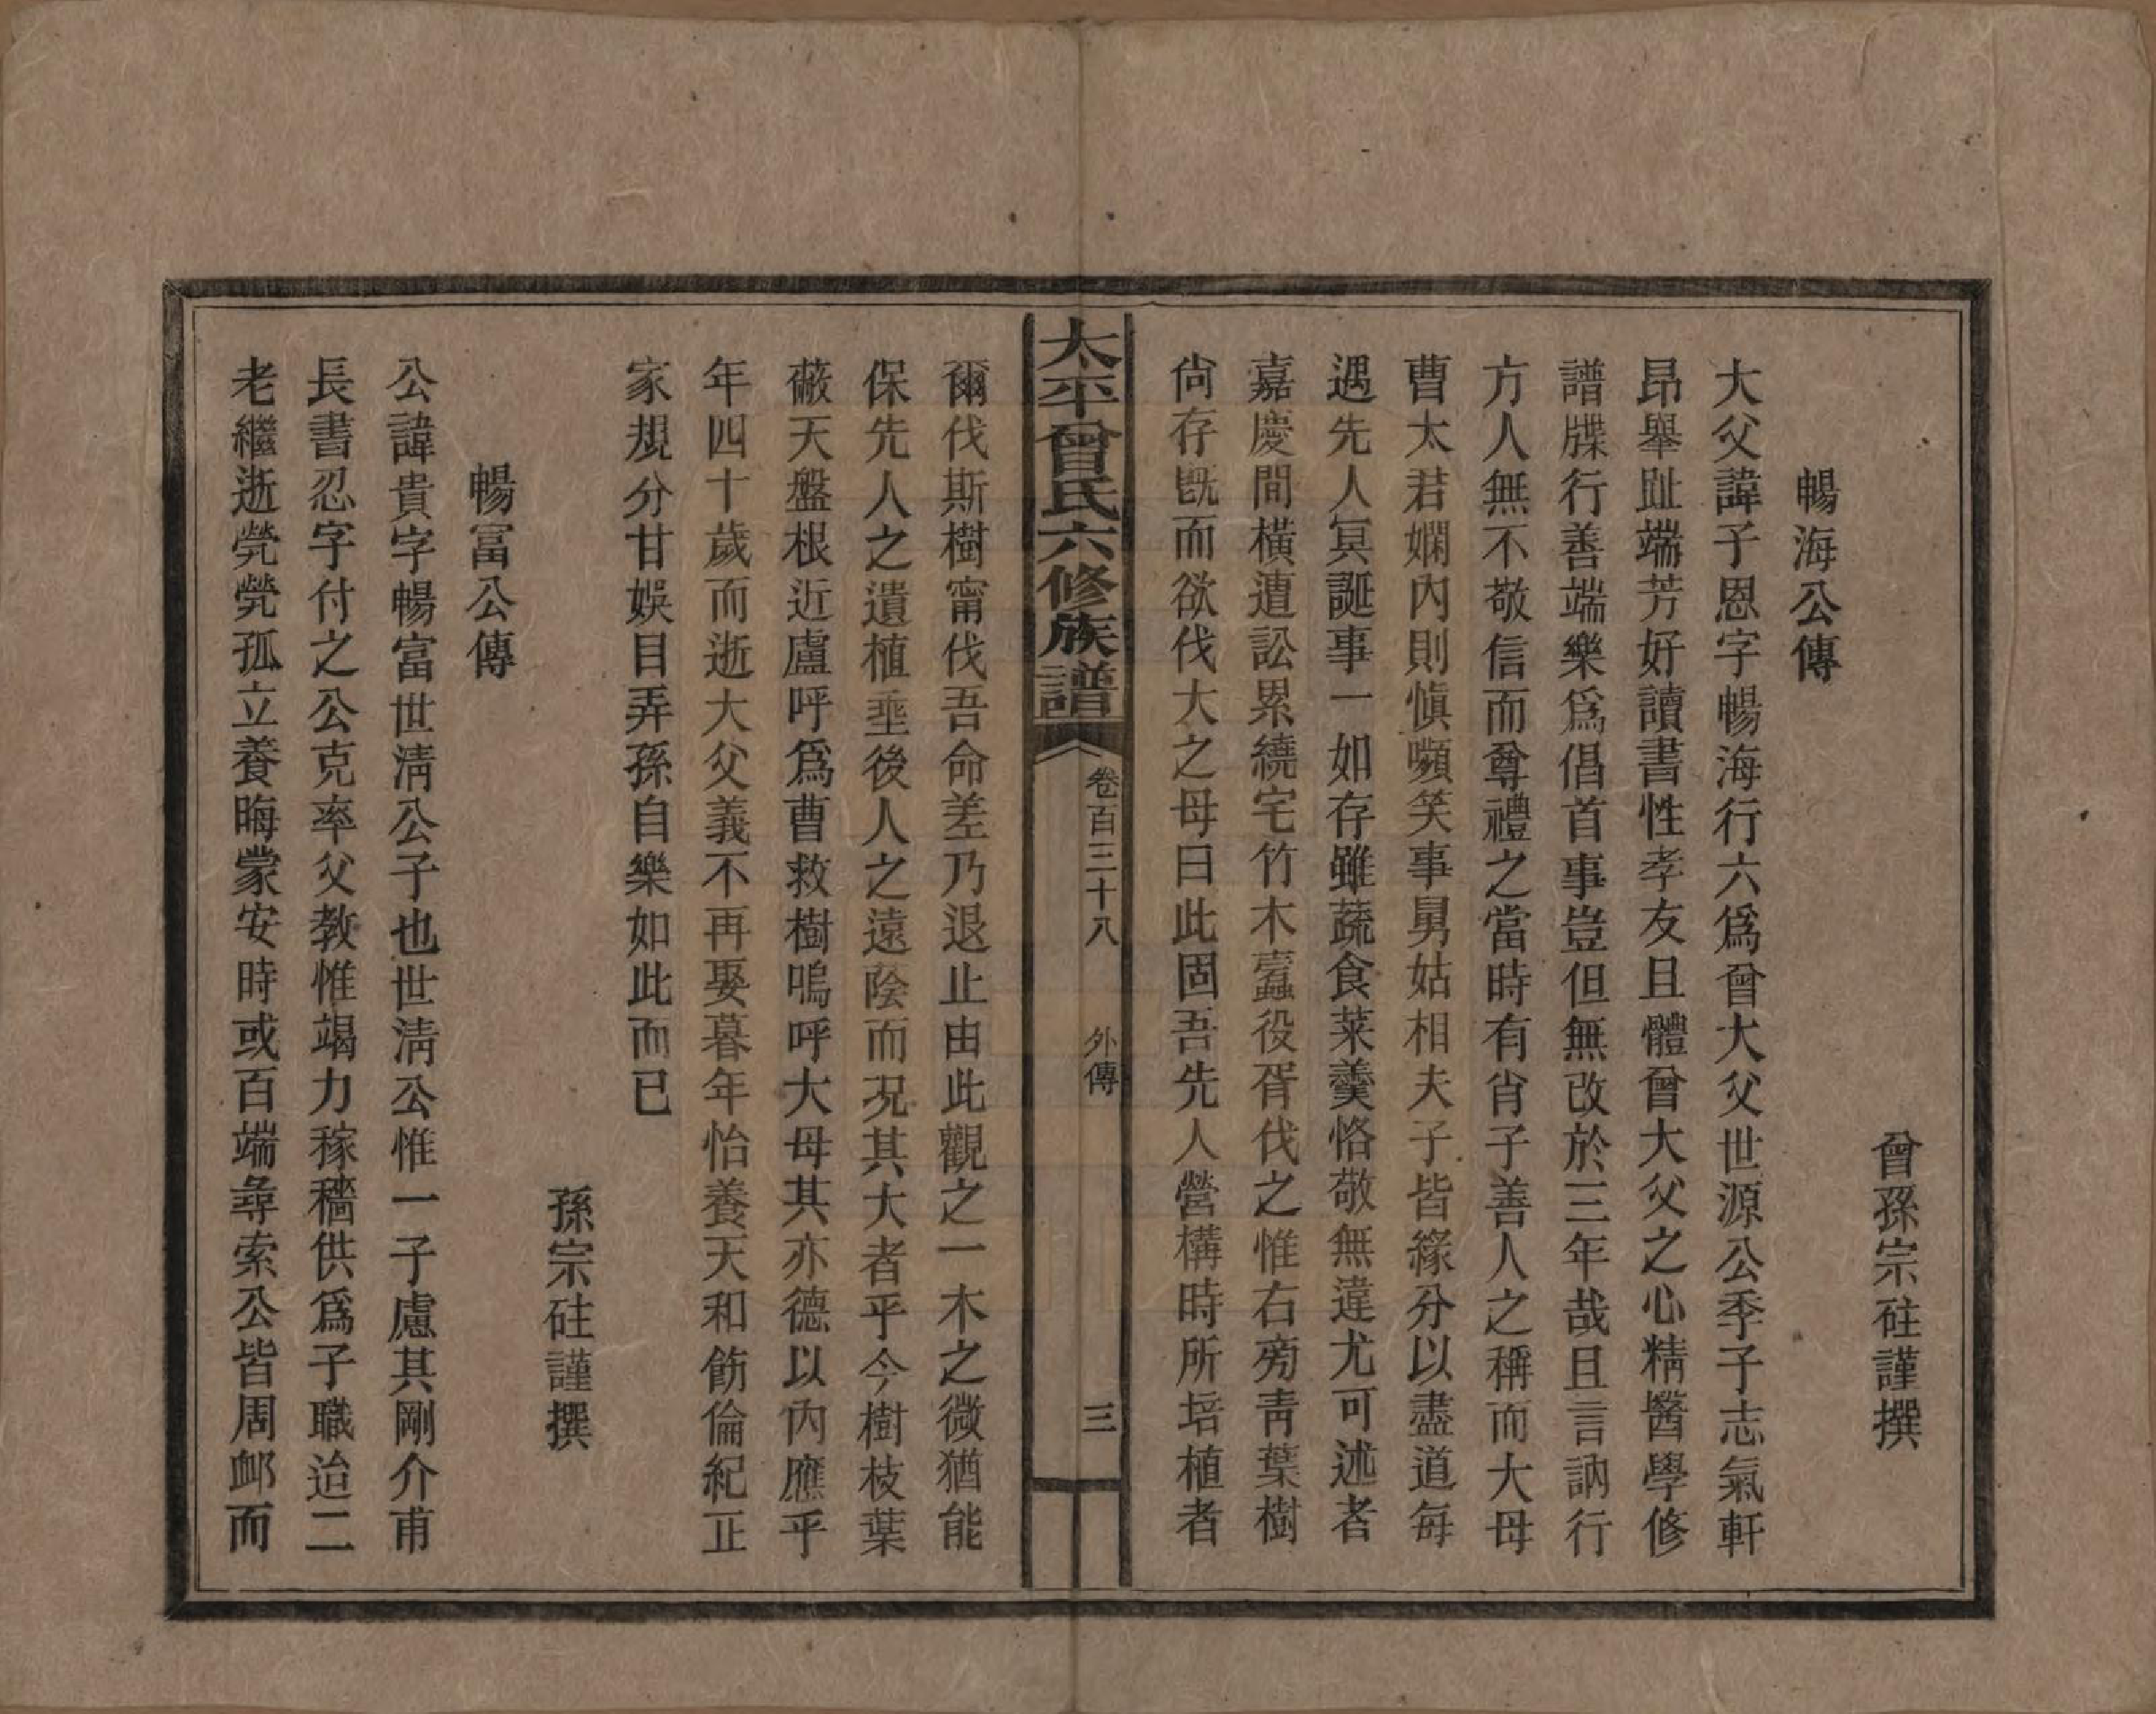 曾孫宗硅謹撰
暢海公傳
大父諱子恩字暢海行六爲曾大父世源公季子志氣軒
昂舉趾端芳好讀書性孝友且體曾大父之心精醫學修
譜牒行善端樂爲倡首事豈但無改於三年哉且言訥行
方人無不敬信而尊禮之當時有肖子善人之稱而大母
曹太君嫻內則愼嚬笑事舅姑相夫子皆緣分以盡道每
遇先人冥誕事一如存雖蔬食菜羹恪敬無違尤可述者
嘉慶間橫遭訟累繞宅竹木蠹役胥伐之惟右旁靑葉樹
尙存旣而欲伐大之母曰此固吾先人營構時所培植者
太平曾氏六修族譜 卷百三十八 外傳 三
爾伐斯樹甯伐吾命差乃退止由此觀之一木之微猶能
保先人之遺植垂後人之遠陰而况其大者乎今樹枝葉
蔽天盤根近廬呼爲曹救樹嗚呼大母其亦德以內應乎
年四十歲而逝大父義不再娶暮年怡養天和飭倫紀正
家規分甘娛目弄孫自樂如此而已
孫宗硅謹撰
暢富公傳
公諱貴字暢富世淸公子也世淸公惟一子慮其剛介甫
長書忍字付之公克率父教惟竭力稼穡供爲子職迨二
老繼逝煢煢孤立養晦蒙安時或百端尋索公皆周卹而